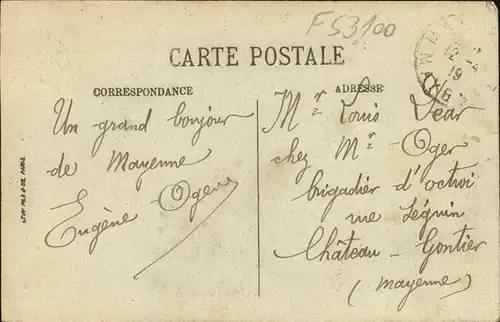 FS3100
CARTE POSTALE
CORRESPONDANCE
Un grand bonjour
de Mayenne
Eugene Oger
ADRESSE
Mr Louis
chez Mr Oger
brigadier d'octroi
rue Séguin
Château-Gontier
(Mayenne)